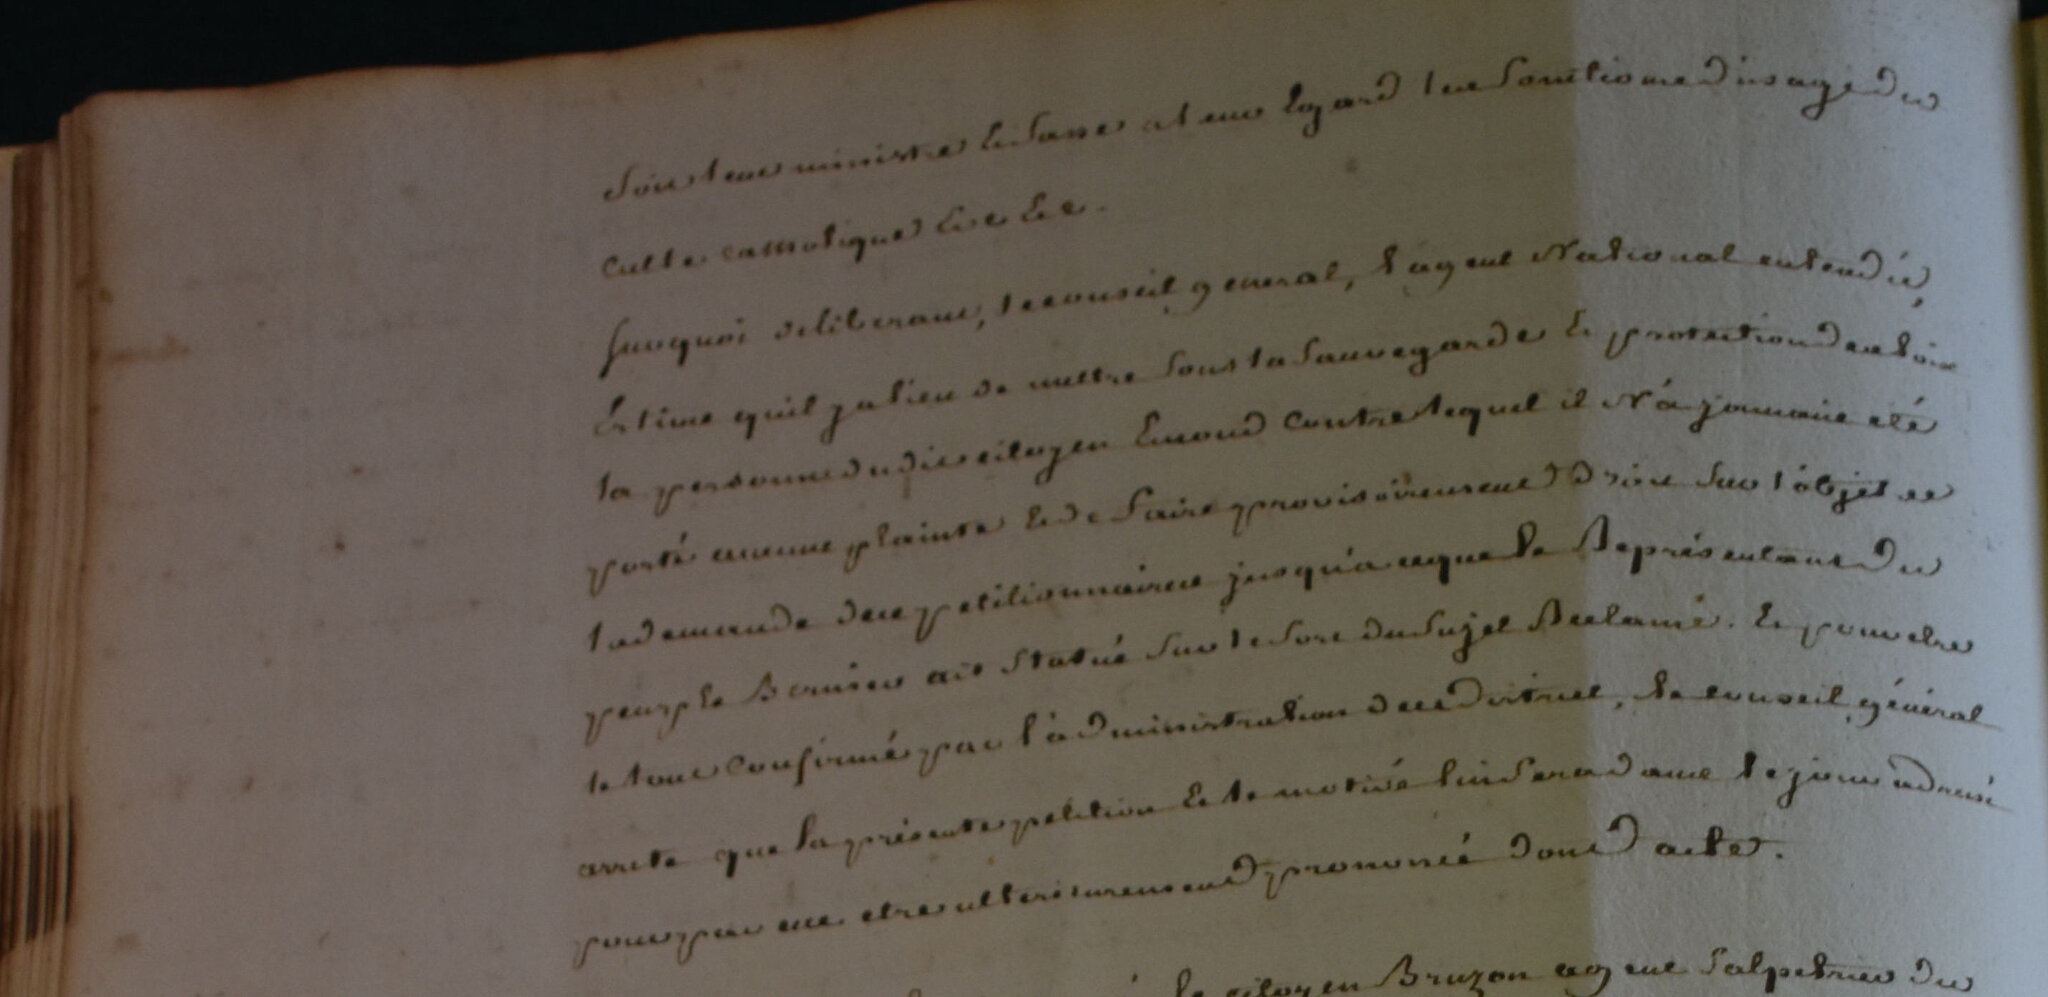 Soit leur ministre & fasse à leur égard les fonctions d'usage du
culte catholique &c &c.
surquoi deliberant, le conseil general, l'agent National entendu,
Estime qu'il y a lieu de mettre sous la sauvegarde & protection des loix
la personne dudit citoyen Emond contre lequel il N'a jamais eté
porté aucune plainte & de faire provisoirement droit sur l'objet de
la demande des petitionnaires jusqu'a ceque le Représentant du
peuple Bernier ait statué sur le sort du sujet Reclamé. Et pour etre
le tout confirmé par l'administration de ce District, le conseil général
arrete que la présente petition & le motivé lui sera dans le jour adressé
pour par eux etre ulterieurement prononcé dont acte.
le citoyen Bruzon agent Salpetrier du